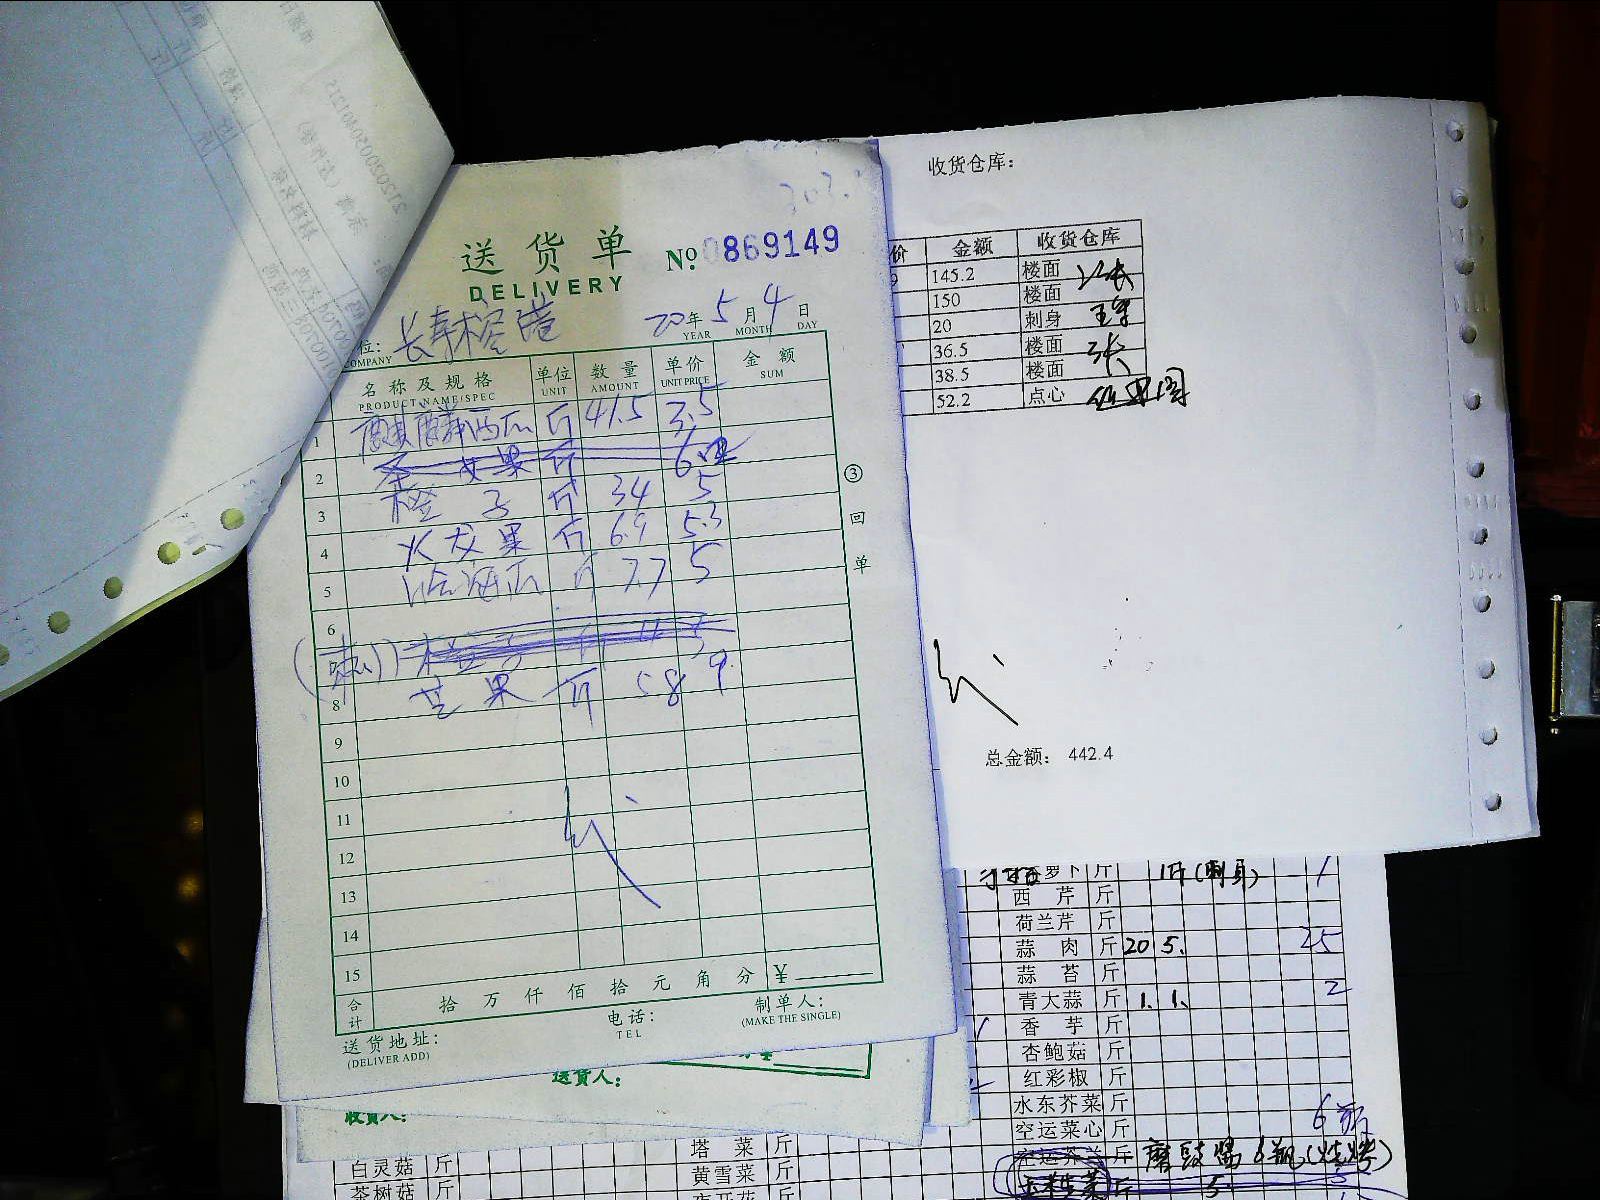 送货单
DELIVERY
№ 0869149
位:
COMPANY
20年5月4日
YEAR MONTH DAY
名称及规格 单位 数量 单价 金额
PRODUCT NAME/SPEC UNIT AMOUNT UNIT PRICE SUM
1 麒麟西瓜 斤 41.5 3.5
2
3 橙子 斤 34 5
4 火龙果 斤 6.9 5.3
5 哈密瓜 斤 7.7 5
6
8 芒果 斤 5.8 9
9
10
11
12
13
14
15
合计 拾万仟佰拾元角分 ¥
③回单
送货地址:
(DELIVER ADD)
电话:
TEL
制单人:
(MAKE THE SINGLE)
送货人:
收货人:
收货仓库:
价 金额 收货仓库
145.2 楼面
150 楼面
20 刺身
36.5 楼面
38.5 楼面
52.2 点心
总金额: 442.4
萝卜 斤 1斤(刺身) 1
西芹 斤
荷兰芹 斤
蒜肉 斤 20 5. 25
蒜苔 斤
青大蒜 斤 1. 1. 2
香芋 斤
杏鲍菇 斤
红彩椒 斤
水东芥菜 斤
空运菜心 斤 6瓶
空运芥兰 斤
塔菜 斤
白灵菇 斤 黄雪菜 斤
茶树菇 斤